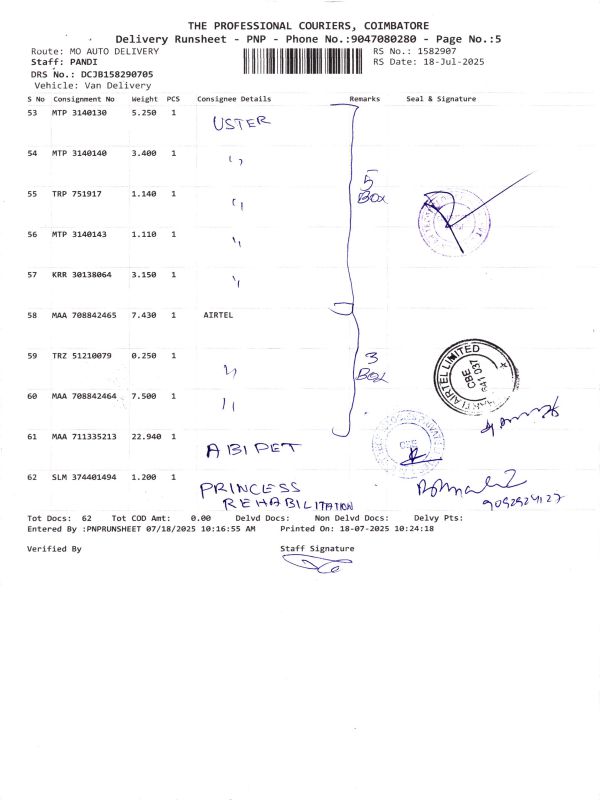 THE PROFESSIONAL COURIERS, COIMBATORE
Delivery Runsheet - PNP - Phone No.:9047080280 - Page No.:5
Route: MO AUTO DELIVERY RS No.: 1582907
Staff: PANDI RS Date: 18-Jul-2025
DRS No.: DCJB158290705
Vehicle: Van Delivery
S No Consignment No Weight PCS Consignee Details Remarks Seal & Signature
53 MTP 3140130 5.250 1 USTER
54 MTP 3140140 3.400 1 〃
55 TRP 751917 1.140 1 〃 5 Box
56 MTP 3140143 1.110 1 〃
57 KRR 30138064 3.150 1 〃
58 MAA 708842465 7.430 1 AIRTEL
59 TRZ 51210079 0.250 1 〃 3 Box
60 MAA 708842464 7.500 1 〃
BHARTI AIRTEL LIMITED
CBE
641 037
61 MAA 711335213 22.940 1 ABIPET
62 SLM 374401494 1.200 1 PRINCESS
REHABILITATION
Tot Docs: 62 Tot COD Amt: 0.00 Delvd Docs: Non Delvd Docs: Delvy Pts:
Entered By :PNPRUNSHEET 07/18/2025 10:16:55 AM Printed On: 18-07-2025 10:24:18
Verified By Staff Signature